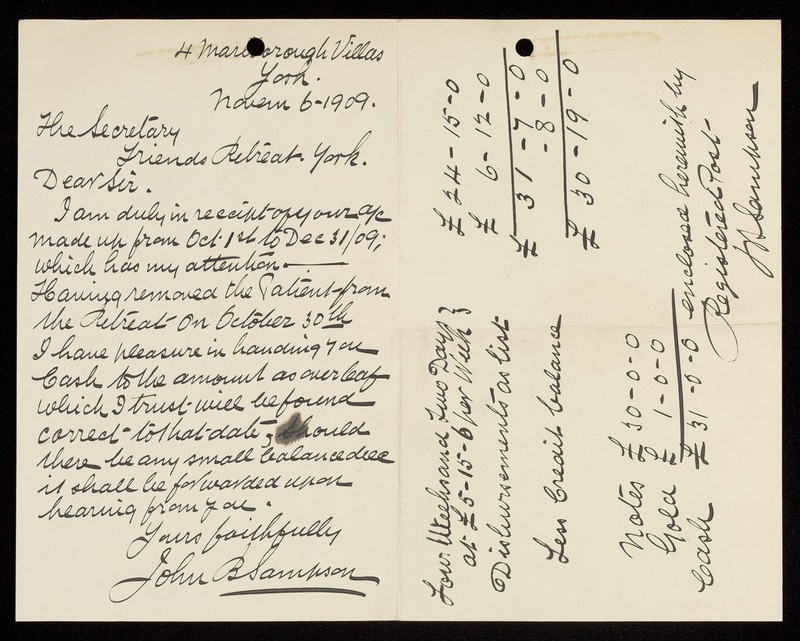 4 Marlborough Villas
York.
Novem 6-1909.
The Secretary
Friends Retreat. York.
Dear Sir.
I am duly in receipt of your a/c
made up from Oct 1st to Dec 31/09;
which has my attention.
Having removed the Patient from
the Retreat on October 30th
I have pleasure in handing you
Cash to the amount as overleaf
which I trust will be found
correct to that date; should
there be any small balance due
it shall be forwarded upon
hearing from you.
Yours faithfully
John B Sampson
Four Weeks and Two Days } £ 24-15-0
at £5-15-6 per Week }
Disbursements as list £ 6-12-0
£ 31-7-0
Less Credit balance -8-0
£ 30-19-0
Notes £ 30-0-0
Gold £ 1-0-0
Cash £ 31-0-0 enclosed herewith by
Registered Post-
Sampson